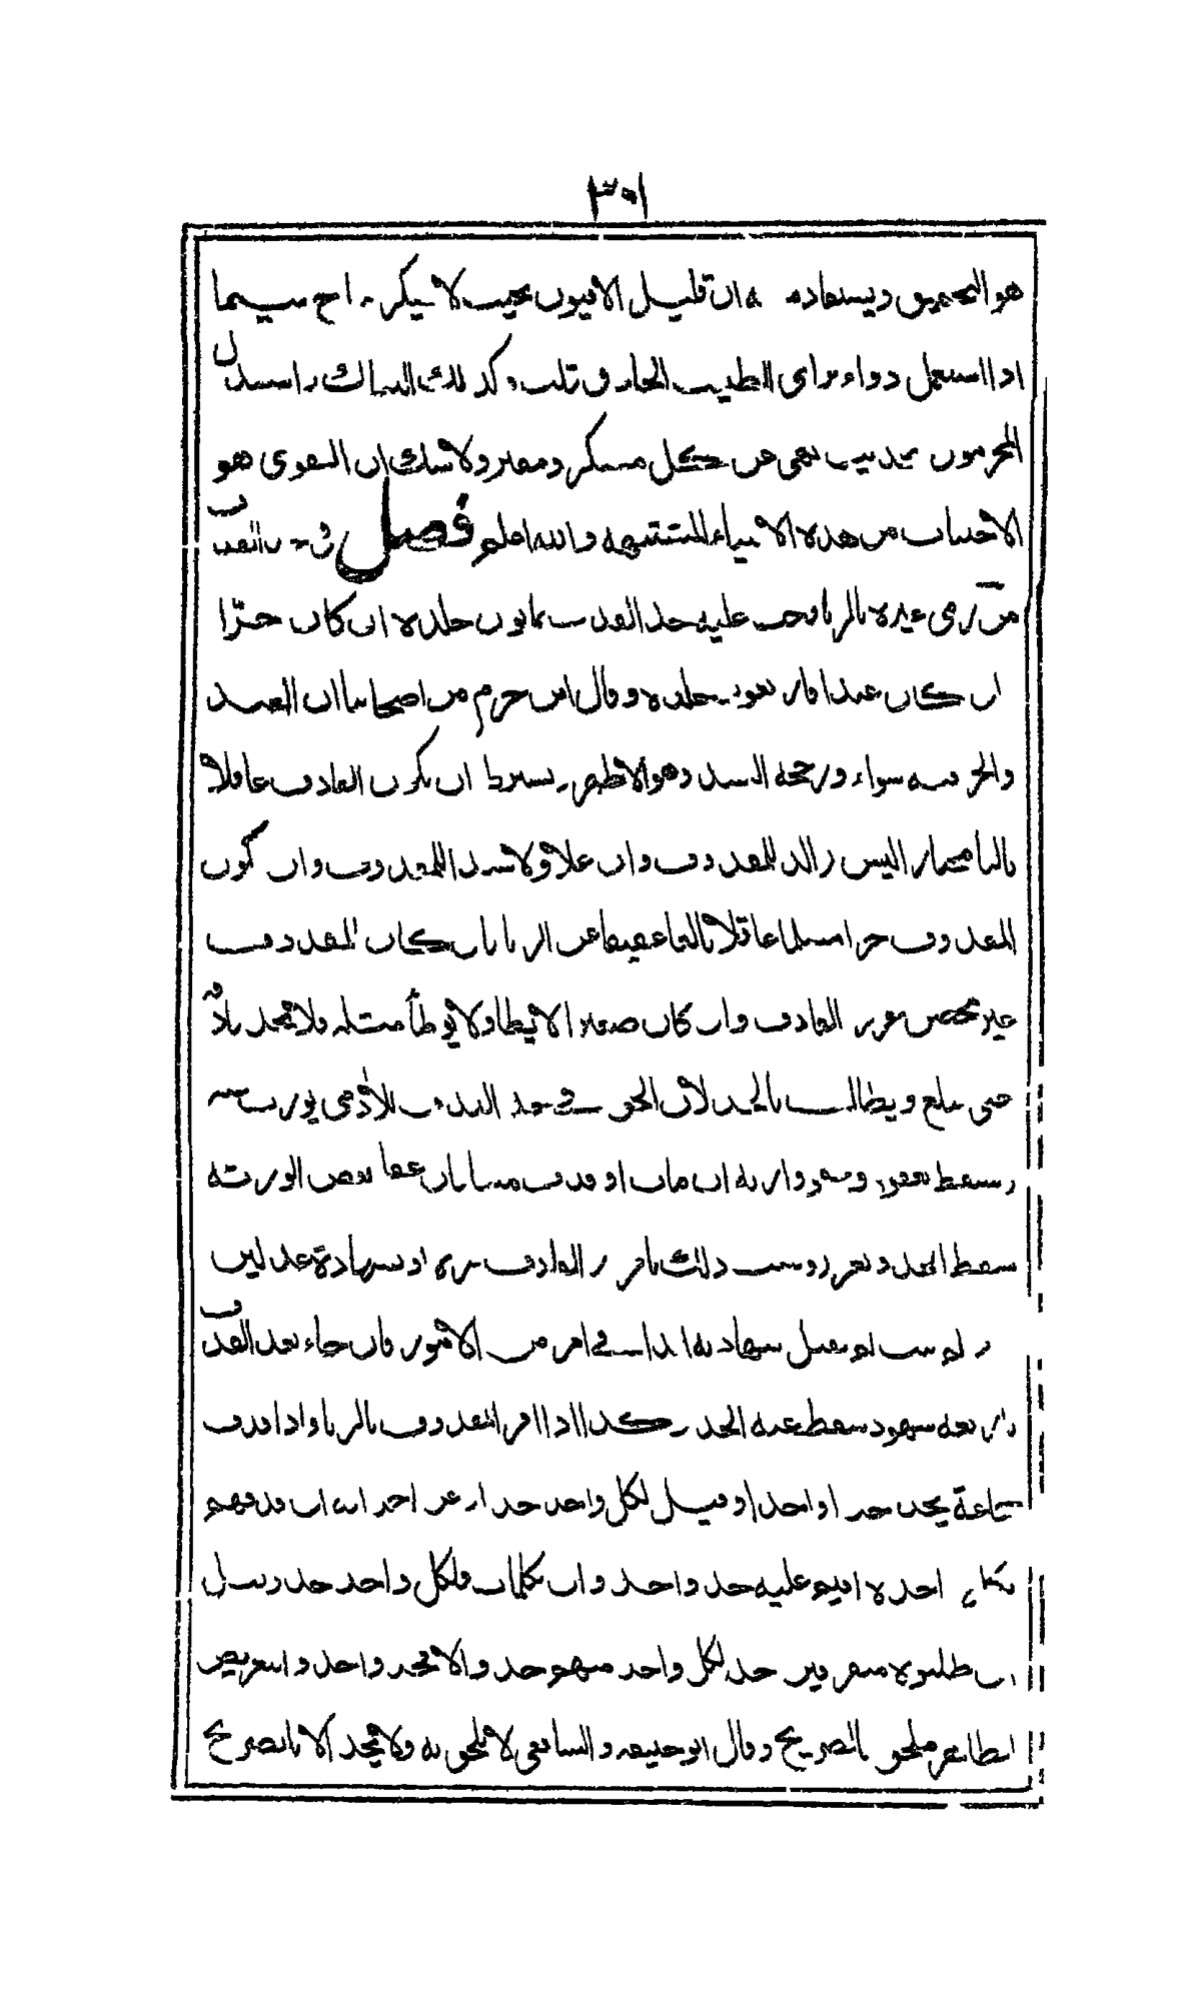 ٣٠١
هو التحقيق ويستفاد منه ان قليل الافيون بحيث لا يسكر مباح سيما
اذا استعمل دواء براى الطبيب الحاذق قلت وكذلك التنباك واستدل
المحرمون بحديث نهى عن كل مسكر ومفتر ولا شك ان التقوى هو
الاجتناب من هذه الاشياء المشتبهة والله اعلم فصل فى حد القذف
من رمى غيره بالزنا وجب عليه حد القذف ثمانون جلدة ان كان حرّا
وان كان عبدا فاربعون جلدة وقال ابن حزم من اصحابنا ان العبد
والحر فيه سواء ورجحه السيد وهو الاظهر ويشترط ان يكون القاذف عاقلا
بالغا مختارا ليس بوالد للمقذوف وان علا ولا سيدا للمقذوف وان يكون
المقذوف حرا مسلما عاقلا بالغا عفيفا عن الزنا فان كان المقذوف
غير محصن عزر القاذف وان كان صغيرا لا يطأ ولا يوطأ مثله فلا يحد قاذفه
حتى يبلغ ويطالب بالحد لان الحق فى حد القذف للآدمى يورث عنه
ويسقط بعفوه وعفو وارثه ان مات او قذف ميتا فان عفا بعض الورثة
سقط الحد ونعزر ويثبت ذلك باقرار القاذف مرة او بشهادة عدلين
واذا لم يتب لم تقبل شهادته ابدا فى امر من الامور فان جاء بعد القذف
باربعة شهود سقط عنه الحد وكذا اذا اقر المقذوف بالزنا واذا قذف
جماعة يحد حدا واحدا وقيل لكل واحد حد
احدة اقيم عليه حد واحد وان بكلمات فلكل واحد حد وقيل
ان طلبوه متفرقين حد لكل واحد منهم حد والا فحد واحد والتعريض
الظاهر ملحق بالصريح وقال ابو حنيفة والشافعى لا يلحق به ولا يحد الا بالصريح